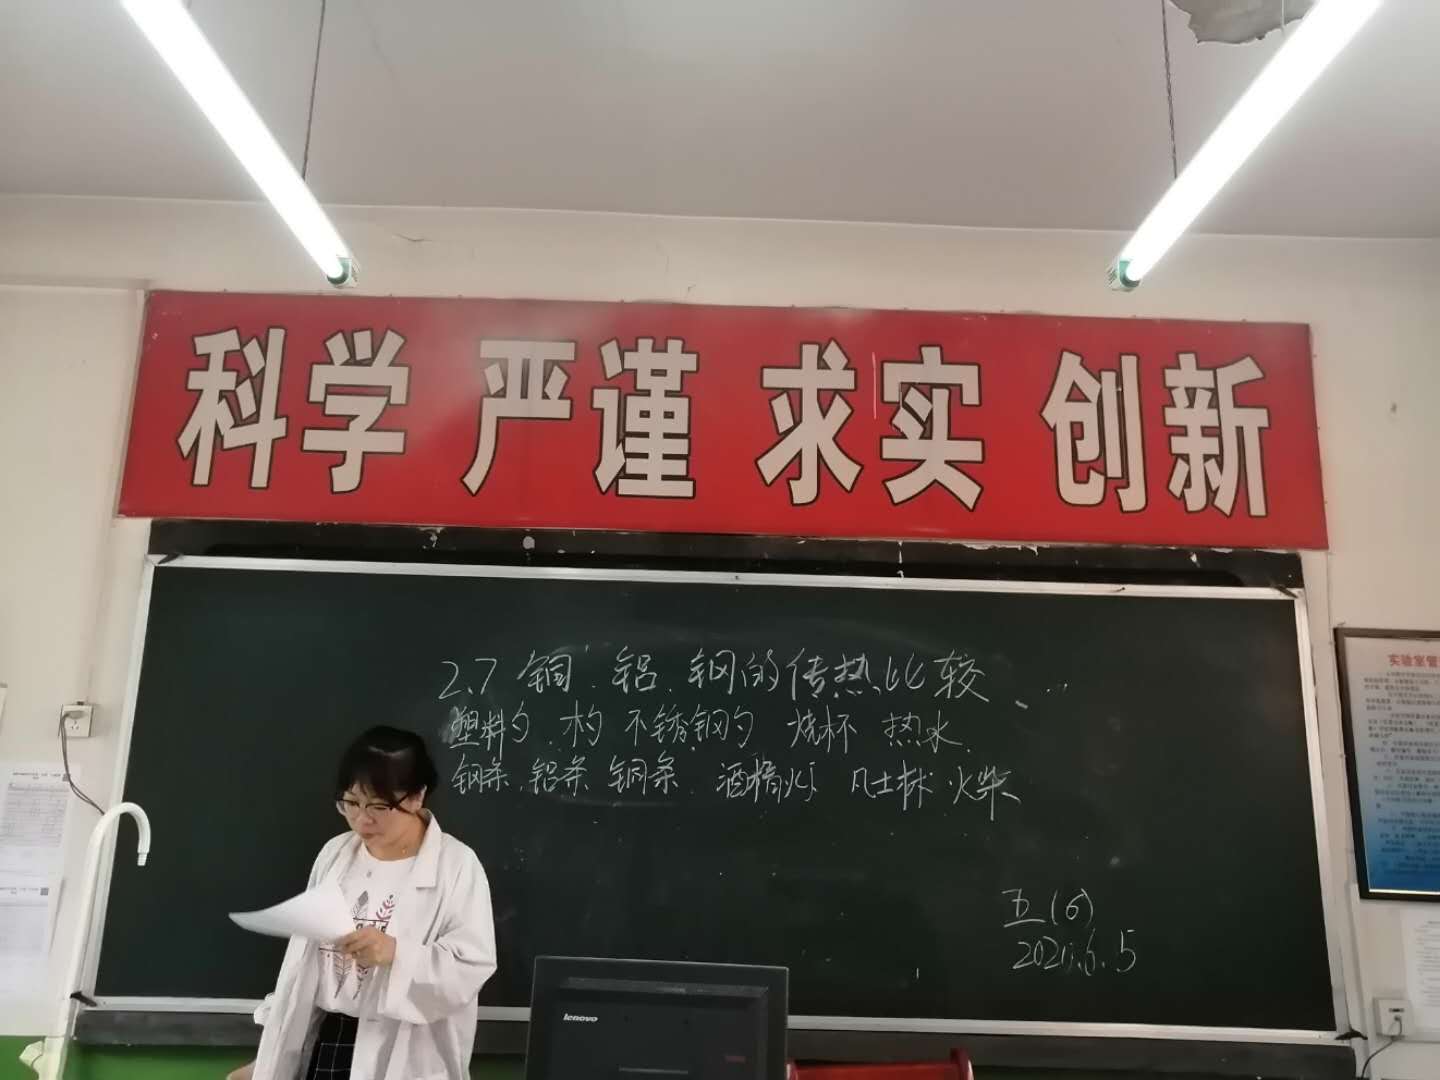 科学 严谨 求实 创新
2.7 铜、铝、钢的传热比较
塑料勺 木勺 不锈钢勺 烧杯 热水
钢条 铝条 铜条 酒精灯 凡士林 火柴
五(6)
2020.6.5
lenovo
实验室管